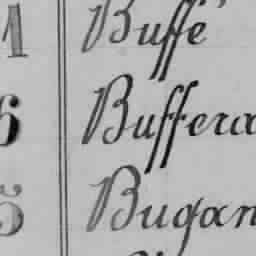 1 Buffé
6 Buffera
5 Bugan